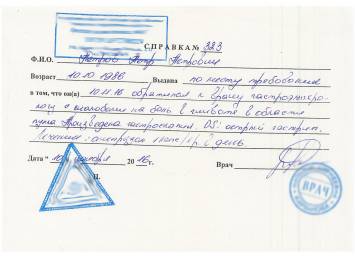 СПРАВКА № 323
Ф.И.О. Петров Петр Петрович
Возраст 10.10 1986 Выдана по месту требования
в том, что он(а) 10.11.16 обратился к врачу гастроэнтеро-
логу с жалобами на боль в животе в области
пупка. Произведена гастроскопия. DS: острый гастрит.
Лечение: 1 р. в день.
Дата " 10 " 20 16 г. Врач
П.
ВРАЧ